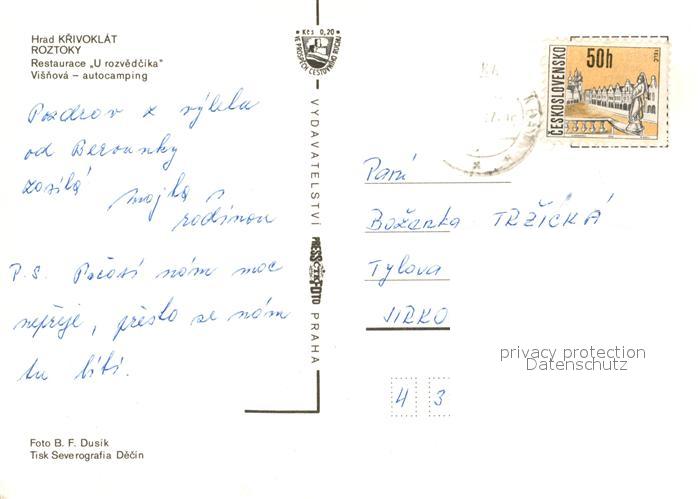 Hrad KŘIVOKLÁT
ROZTOKY
Restaurace „U rozvědčíka“
Višňová – autocamping
Pozdrav z výletu
od Berounky
zasílá Majka s
rodinou
P.S. Počasí nám moc
nepřeje, přesto se nám
tu líbí.
Foto B. F. Dusík
Tisk Severografia Děčín
Kčs 0,20
VE PROSPĚCH CESTOVNÍHO RUCHU
VYDAVATELSTVÍ PRESSFOTO PRAHA
ČESKOSLOVENSKO
50h
TELČ
Paní
Boženka TRŽICKÁ
Tylova
JIRKO
privacy protection
Datenschutz
4 3